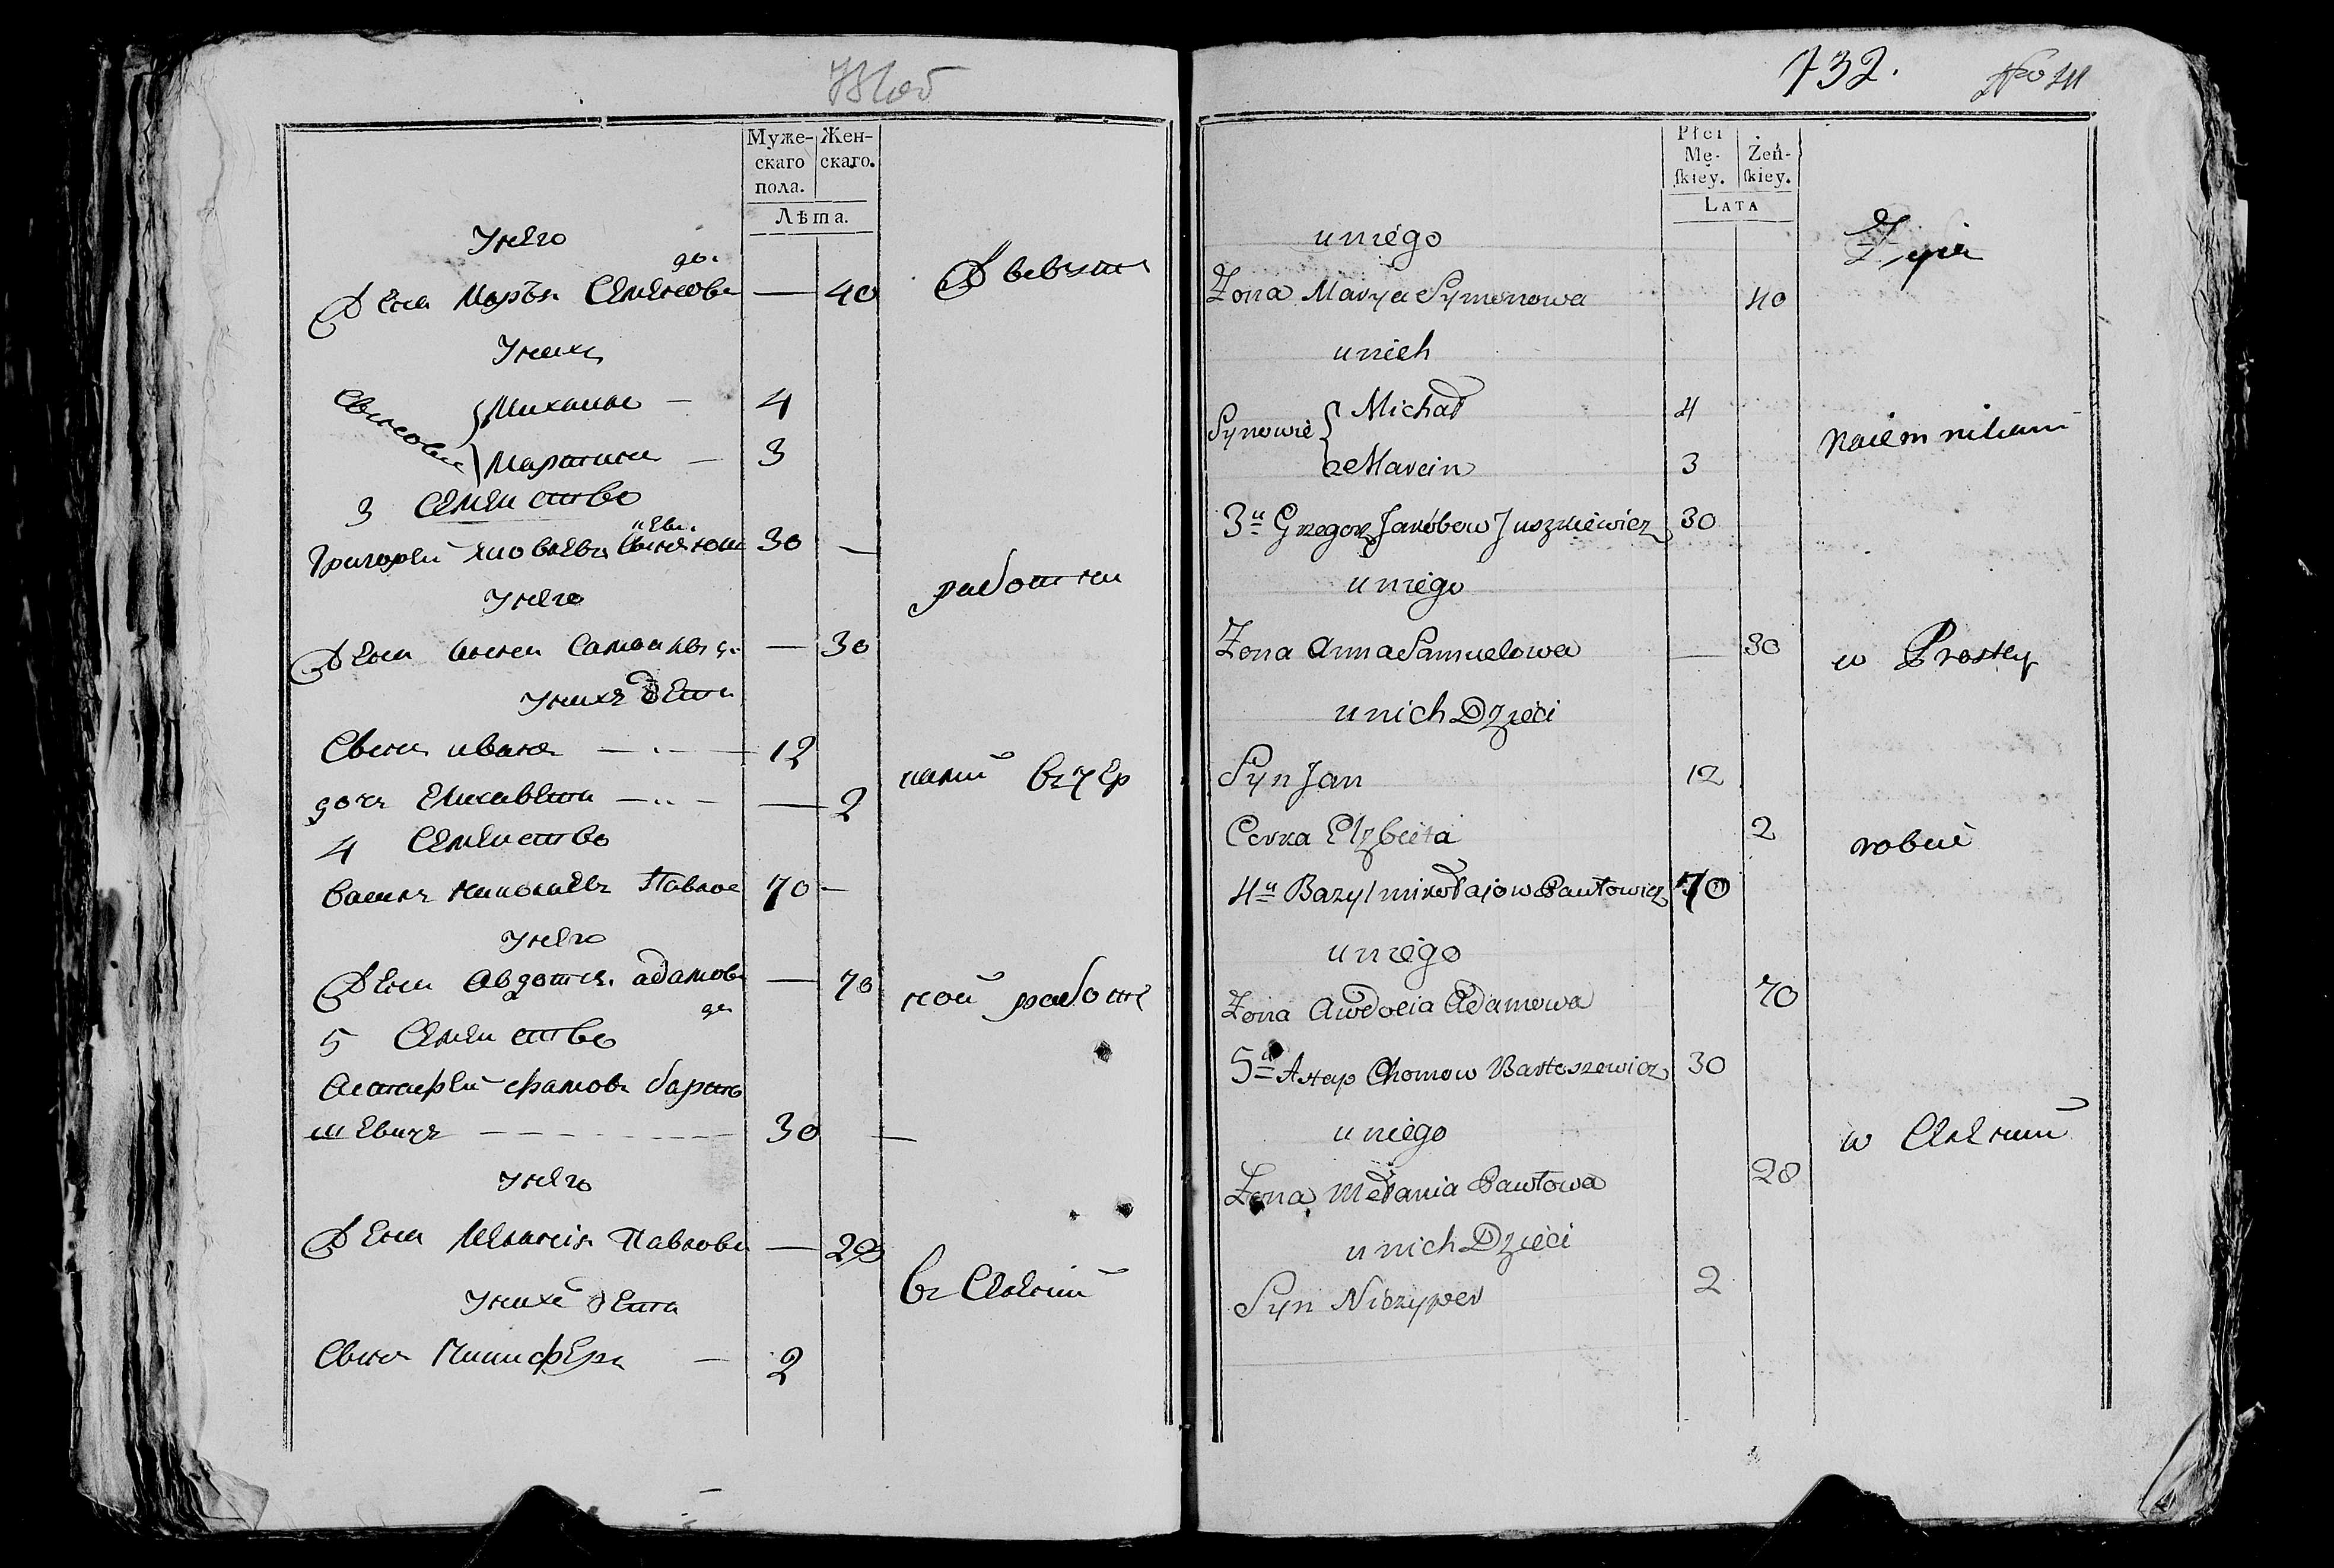 Муже-
скаго
пола.
Жен-
скаго.
Лѣта.
У него
Жена Марья Семенова
до.
40
Живутъ
У нихъ
Сыновья
Михаилъ — 4
Мартинъ — 3
3 Семейство
Григорей Яковлевъ
30 —
У него
работни
Жена Анна Самойлов д.
— 30
У нихъ дети
Сынъ иванъ — 12
дочь Елисавета — 2
4 Семейство
Василь николаевъ Павло
70 —
У него
Жена Авдотья адамов
да
— 70
ной работе
5 Семейство
Астафей фамовъ барто
шевичъ — 30 —
У него
Жена Меланія Павлова
— 28
въ Селеніи
У нихъ дети
Сынъ Никиферъ — 2
732.
Płci
Mę-
skiey.
Żeń-
skiey.
LATA
u niego
Żyią
Zona Marya Symonowa 40
u nich
Synowie
Michał 4
Marcin 3
naiemnikami
3u Grzegorz Jakóbow Juszkiewicz 30
u niego
Zona Anna Samuelowa — 30
w Prostey
u nich Dzieci
Syn Jan 12
Corka Elzbieta 2
robue
4u Bazyl mikołajow Pawłowicz 70
u niego
Zona Awdocia Adamowa 70
5u Astap Chomow Bartoszewicz 30
u niego
w
Zona Mełania Pawłowa 28
u nich Dzieci
Syn Niczyper 2